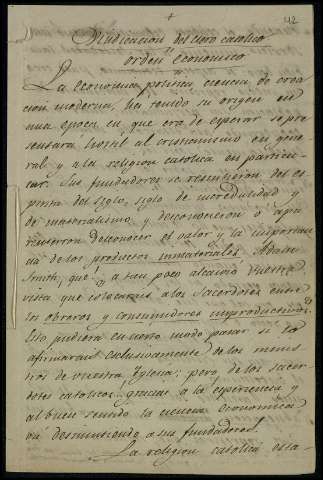 42
Vindicacion del clero catolico
orden economico
La economia politica, ciencia de crea
cion moderna, ha tenido su origen en
una epoca en que era de esperar se pre
sentara hostil al cristianismo en gene
ral y a la religion catolica en particu
lar. Sus fundadores se resentieron del es
piritu del siglo, siglo de incredulidad y
de materialismo y desconocieron ó apa
rentaron desconocer el valor y la importan
cia de los productos inmateriales. Adam
Smith, que! a tan poco alcanzó vuestra
vista que colocarais a los Sacerdotes entre
los obreros y consumidores improductivos?
Esto pudiera en cierto modo pasar si lo
afirmarais esclusivamente de los minis
tros de vuestra Iglesia; pero de los sacer
dotes catolicos.. gracias a la esperiencia y
al buen sentido la ciencia economica
vá desmintiendo a sus fundadores!
La religion catolica esta-